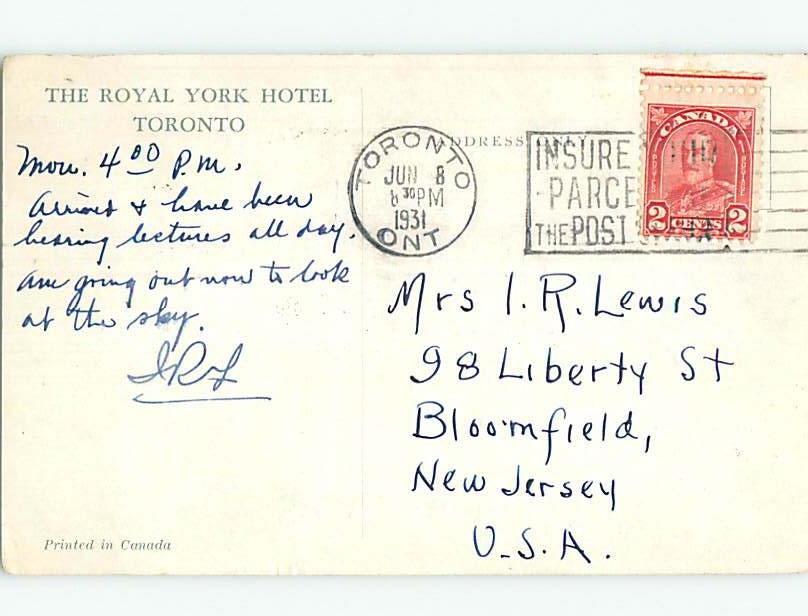 THE ROYAL YORK HOTEL
TORONTO
Mon. 4 00 P.M.
Arrived & have been
hearing lectures all day.
Am going out now to look
at the sky.
IRL
Printed in Canada
ADDRESS ONLY
TORONTO
JUN 8
8 30 PM
1931
ONT
INSURE
PARCE
THE POST
CANADA
POSTES
POSTAGE
2 CENTS 2
Mrs I. R. Lewis
98 Liberty St
Bloomfield,
New Jersey
U.S.A.